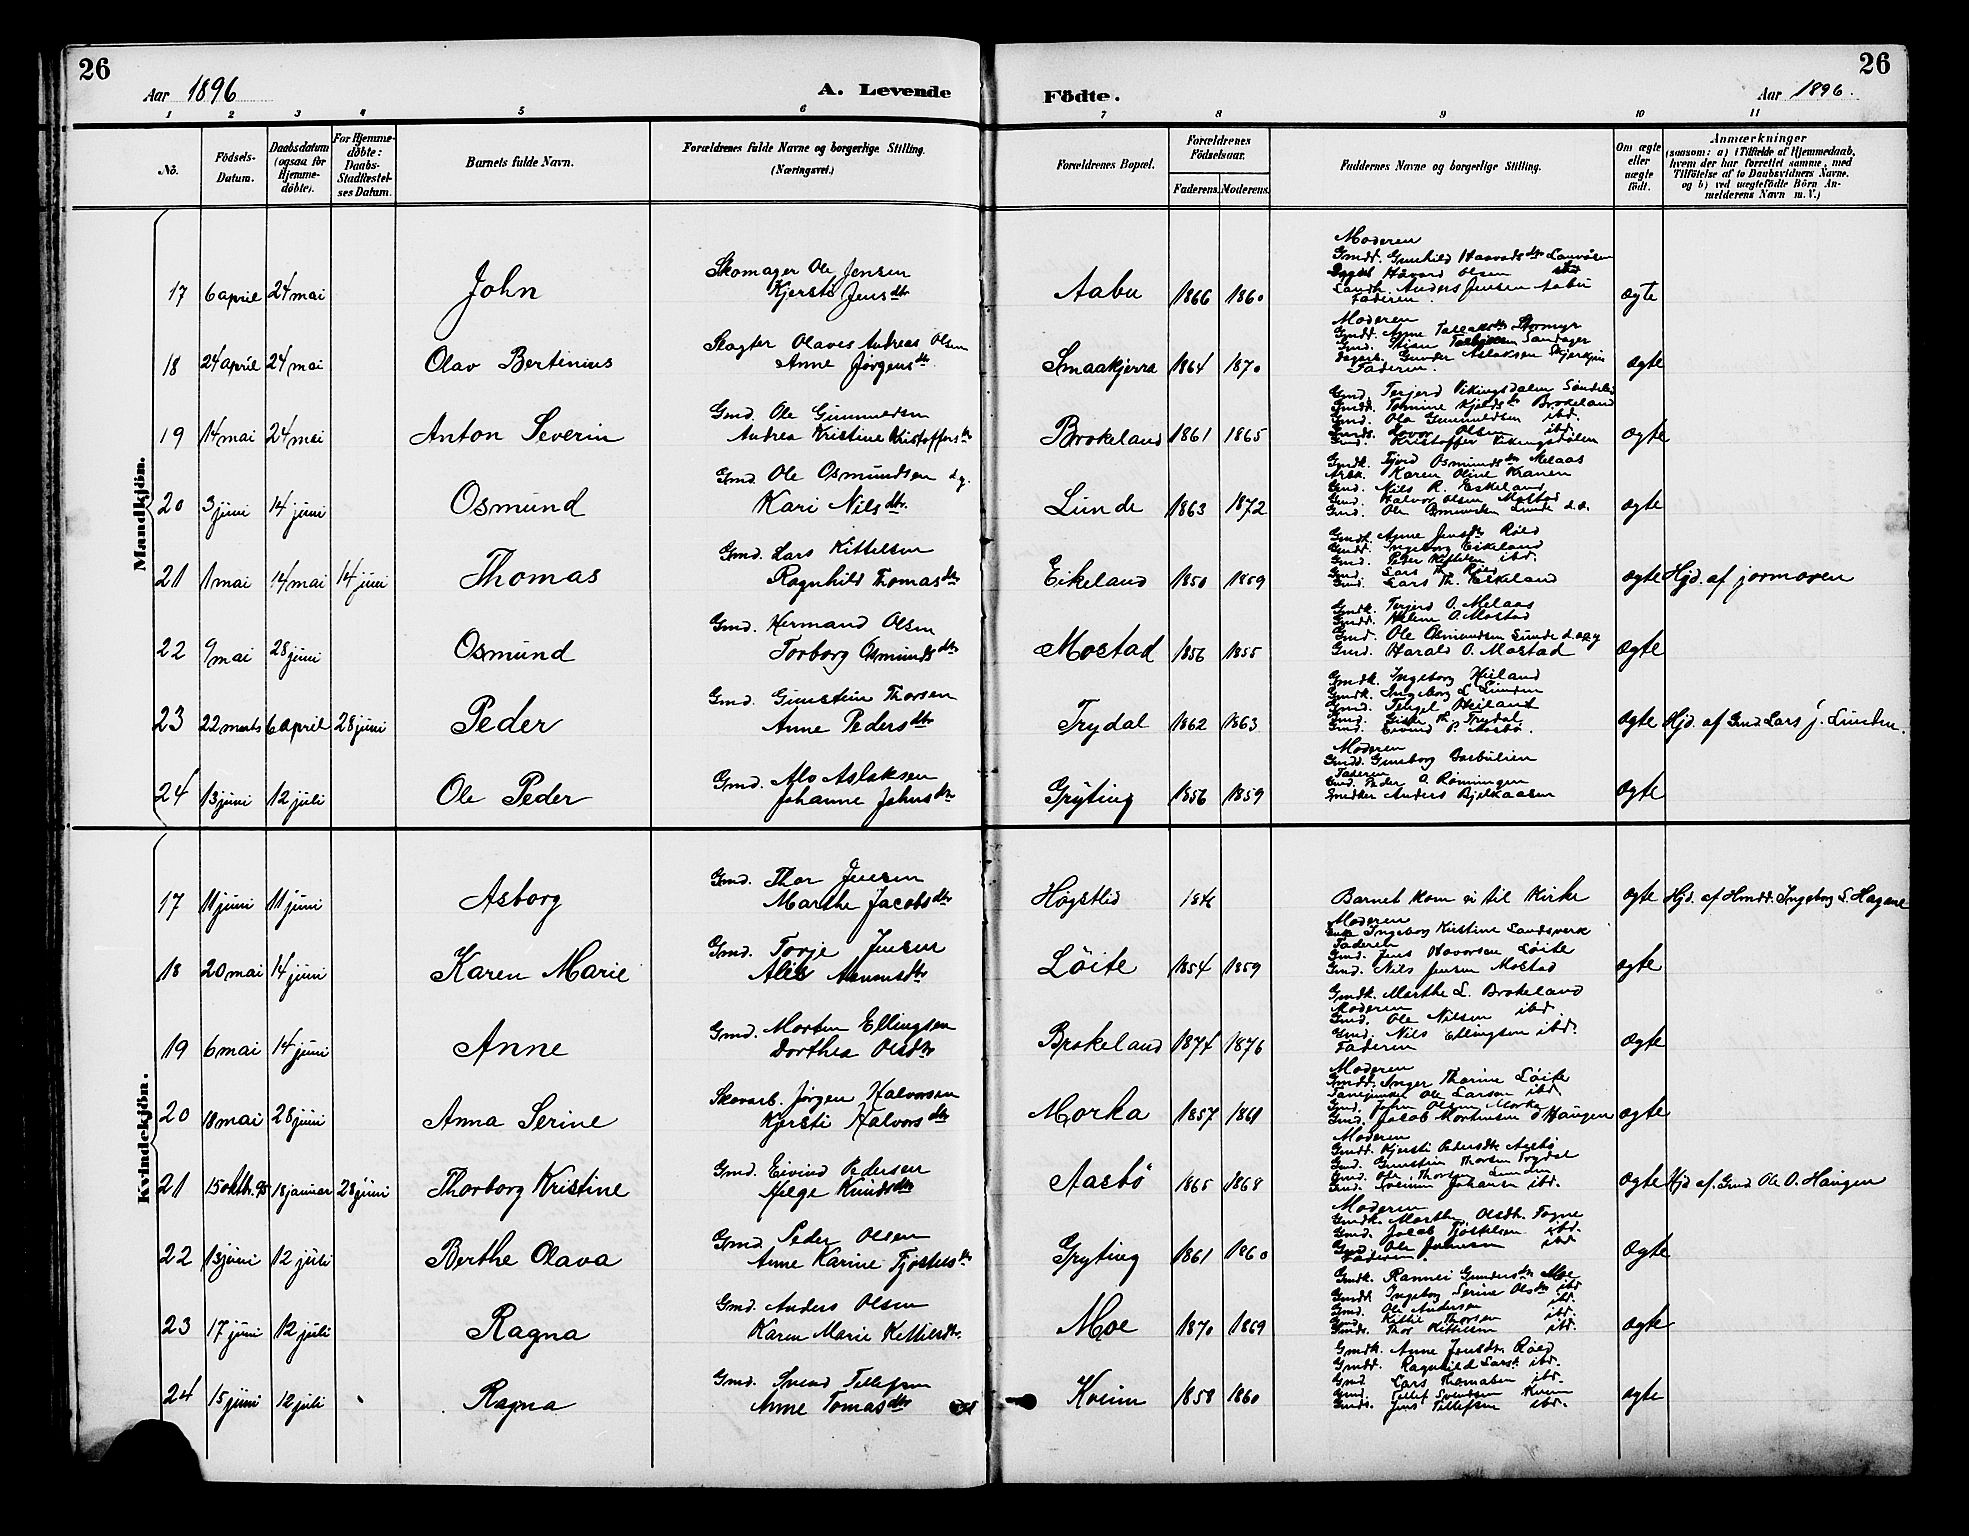 26
Aar 1896
A. Levende
Födte.
Aar 1896.
26
1 2 3 4 5 6 7 8 9 10 11
No.
Födsels-Datum.
Daabsdatum (ogsaa for Hjemme-döbte).
For Hjemme-döbte: Daabs-Stadfæstel-ses Datum.
Barnets fulde Navn.
Forældrenes fulde Navne og borgerlige Stilling. (Næringsvei.)
Forældrenes Bopæl.
Forældrenes Födselsaar.
Faderens. Moderens.
Faddernes Navne og borgerlige Stilling.
Om ægte eller uægte födt.
Anmærkninger (saasom: a) i Tilfælde af Hjemmedaab, hvem der har forrettet samme, med Tilföielse af to Daabsvidners Navne. og b) ved uægtefödte Börn An-melderens Navn m.V.)
Mandkjön.
17 6 april 24 mai John Skomager Ole Jensen
Kjersti Jensdtr Aabu 1866 1860 ægte
Moderen
Gmdd. Gunhild Haavardsdtr
Havard Olsen
Anders Jensen Aabu
Faderen.
18 24 april 24 mai Olav Bertinius Slagter Olaves Andreas Olsen
Anne Jörgensdtr. Smaakjerra 1864 1870 ægte
Moderen
Gunder Aslaksen
Faderen.
19 14 mai 24 mai Anton Severin Gmd. Ole Gunmundsen
Andrea Kristine Kristoffersdtr Brokeland 1861 1865 ægte
Brokeland
Gmd. Ole Gunmundsen ibd.
Olsen ibd.
Gmd. Kristoffer Vikingsdalen
20 3 juni 14 juni Osmund Gmd. Ole Osmundsen d.y.
Kari Nilsdtr. Lunde 1863 1872 ægte
Osmundsdtr Melaas
Karen Oline Kranen
Gmd. Nils R. Eskeland
Gmd. Halvor Olsen Mostad
Gmd. Ole Osmundsen Lunde d.æ.
21 1 mai 14 mai 14 juni Thomas Gmd. Lars Kittelsen
Ragnhild Thomasdtr Eikeland 1850 1859 ægte Hjd. af jormoren
Gmdk. Anne Jensdtr Röed
Gmdd. Ingeborg Eikeland
Gmd. Peder Kittelsen ibd.
Gmd. Lars Th. Röed
Gmd. Lars Th. Eikeland
22 9 mai 28 juni Osmund Gmd. Hermand Olsen
Torborg Osmundsdtr Mostad 1856 1855 ægte
Gmdk. Terjerd O. Melaas
Gmdd. Helene O. Mostad
Gmd. Ole Osmundsen Lunde
Gmd. Harald O. Mostad
23 22 marts 6 april 28 juni Peder Gmd. Gunstein Thorsen
Anne Pedersdtr Trydal 1862 1863 ægte Hjd. af Gmd Lars J. Lunden.
Gmdk. Ingeborg Heiland
Gmdk. Ingeborg L Lunden
Gmd. Tengel Heiland
Trydal.
Gmd. Eivind P. Aasbö.
24 13 juni 12 juli Ole Peder Gmd. Alo Aslaksen
Johanne Johnsdtr Gryting 1856 1859 ægte
Moderen
Faderen
Gmd. Peder O. Rönningen
Anders Bjelkaasen
Kvindekjön.
17 11 juni 11 juni Asborg Gmd. Thor Jensen
Marthe Jacobsdtr Högstlid 1846 Barnet kom ei til Kirke ægte Hjd. af Hmdd. Ingeborg S. Hagane
18 20 mai 14 juni Karen Marie Gmd. Torje Jensen
Löite 1854 1859 ægte
Moderen
Ingeborg Kirstine Landsverk
Faderen
Gmd. Jens Havorsen Löite
Gmd. Nils Jensen Mostad
19 6 mai 14 juni Anne Gmd. Morten Ellingsen
Dorthea Olsdtr Brokeland 1874 1876 ægte
Gmdk. Marthe L. Brokeland
Moderen
Gmd. Ole Nilsen ibd.
Gmd. Nils Ellingsen ibd.
Faderen
20 18 mai 28 juni Anna Serine Skovarb. Jörgen Halvorsen
Kjersti Halvorsdtr Morka 1857 1861 ægte
Moderen
Gmdd. Inger Thorine Löite
Ole Larsen ibd.
Gmd. John Olsen Morka
Gmd. Jacob Mortensen Haugen
21 15 oktbr. 95 18 januar 28 juni Thorborg Kristine Gmd. Eivind Pedersen
Helge Knudsdtr Aasbö 1865 1868 ægte Hjd af. Gmd Ole O. Haugen
Moderen
Gmdd. Kjersti Pedersdtr Aasbö
Gmd. Gunstein Thorsen Trydal
Gmd. Ole Thorsen Lunden
Johansen ibd.
22 13 juni 12 juli Berthe Olava Gmd. Peder Olsen
Anne Karine Tjöstelsdtr Gryting 1861 1860 ægte
Moderen
Gmdk. Marthe Olsdtr. Fogne
Gmd. Jacob Tjöstelsen ibd.
Gmd. Ole Jensen ibd
Faderen.
23 17 juni 12 juli Ragna Gmd. Anders Olsen
Karen Marie Kettilsdtr. Moe 1870 1869 ægte
Gmdk. Rannei Gundersdtr Moe
Gmdd. Ingeborg Serine Olsdtr ibd.
Gmd. Ole Andersen ibd.
Gmd. Kittil Thorsen ibd.
Gmds. Thor Kittilsen ibd.
24 15 juni 12 juli Ragna Gmd. Svend Tellefsen
Anne Tomasdtr Kveim 1858 1860 ægte
Gmdk. Anne Jensdtr. Röed
Gmdd. Ragnhild Larsdtr ibd.
Gmd. Lars Thomasen ibd.
Gmd. Tellef Svendsen Kveim
Gmds. Jens Tellefsen ibd.